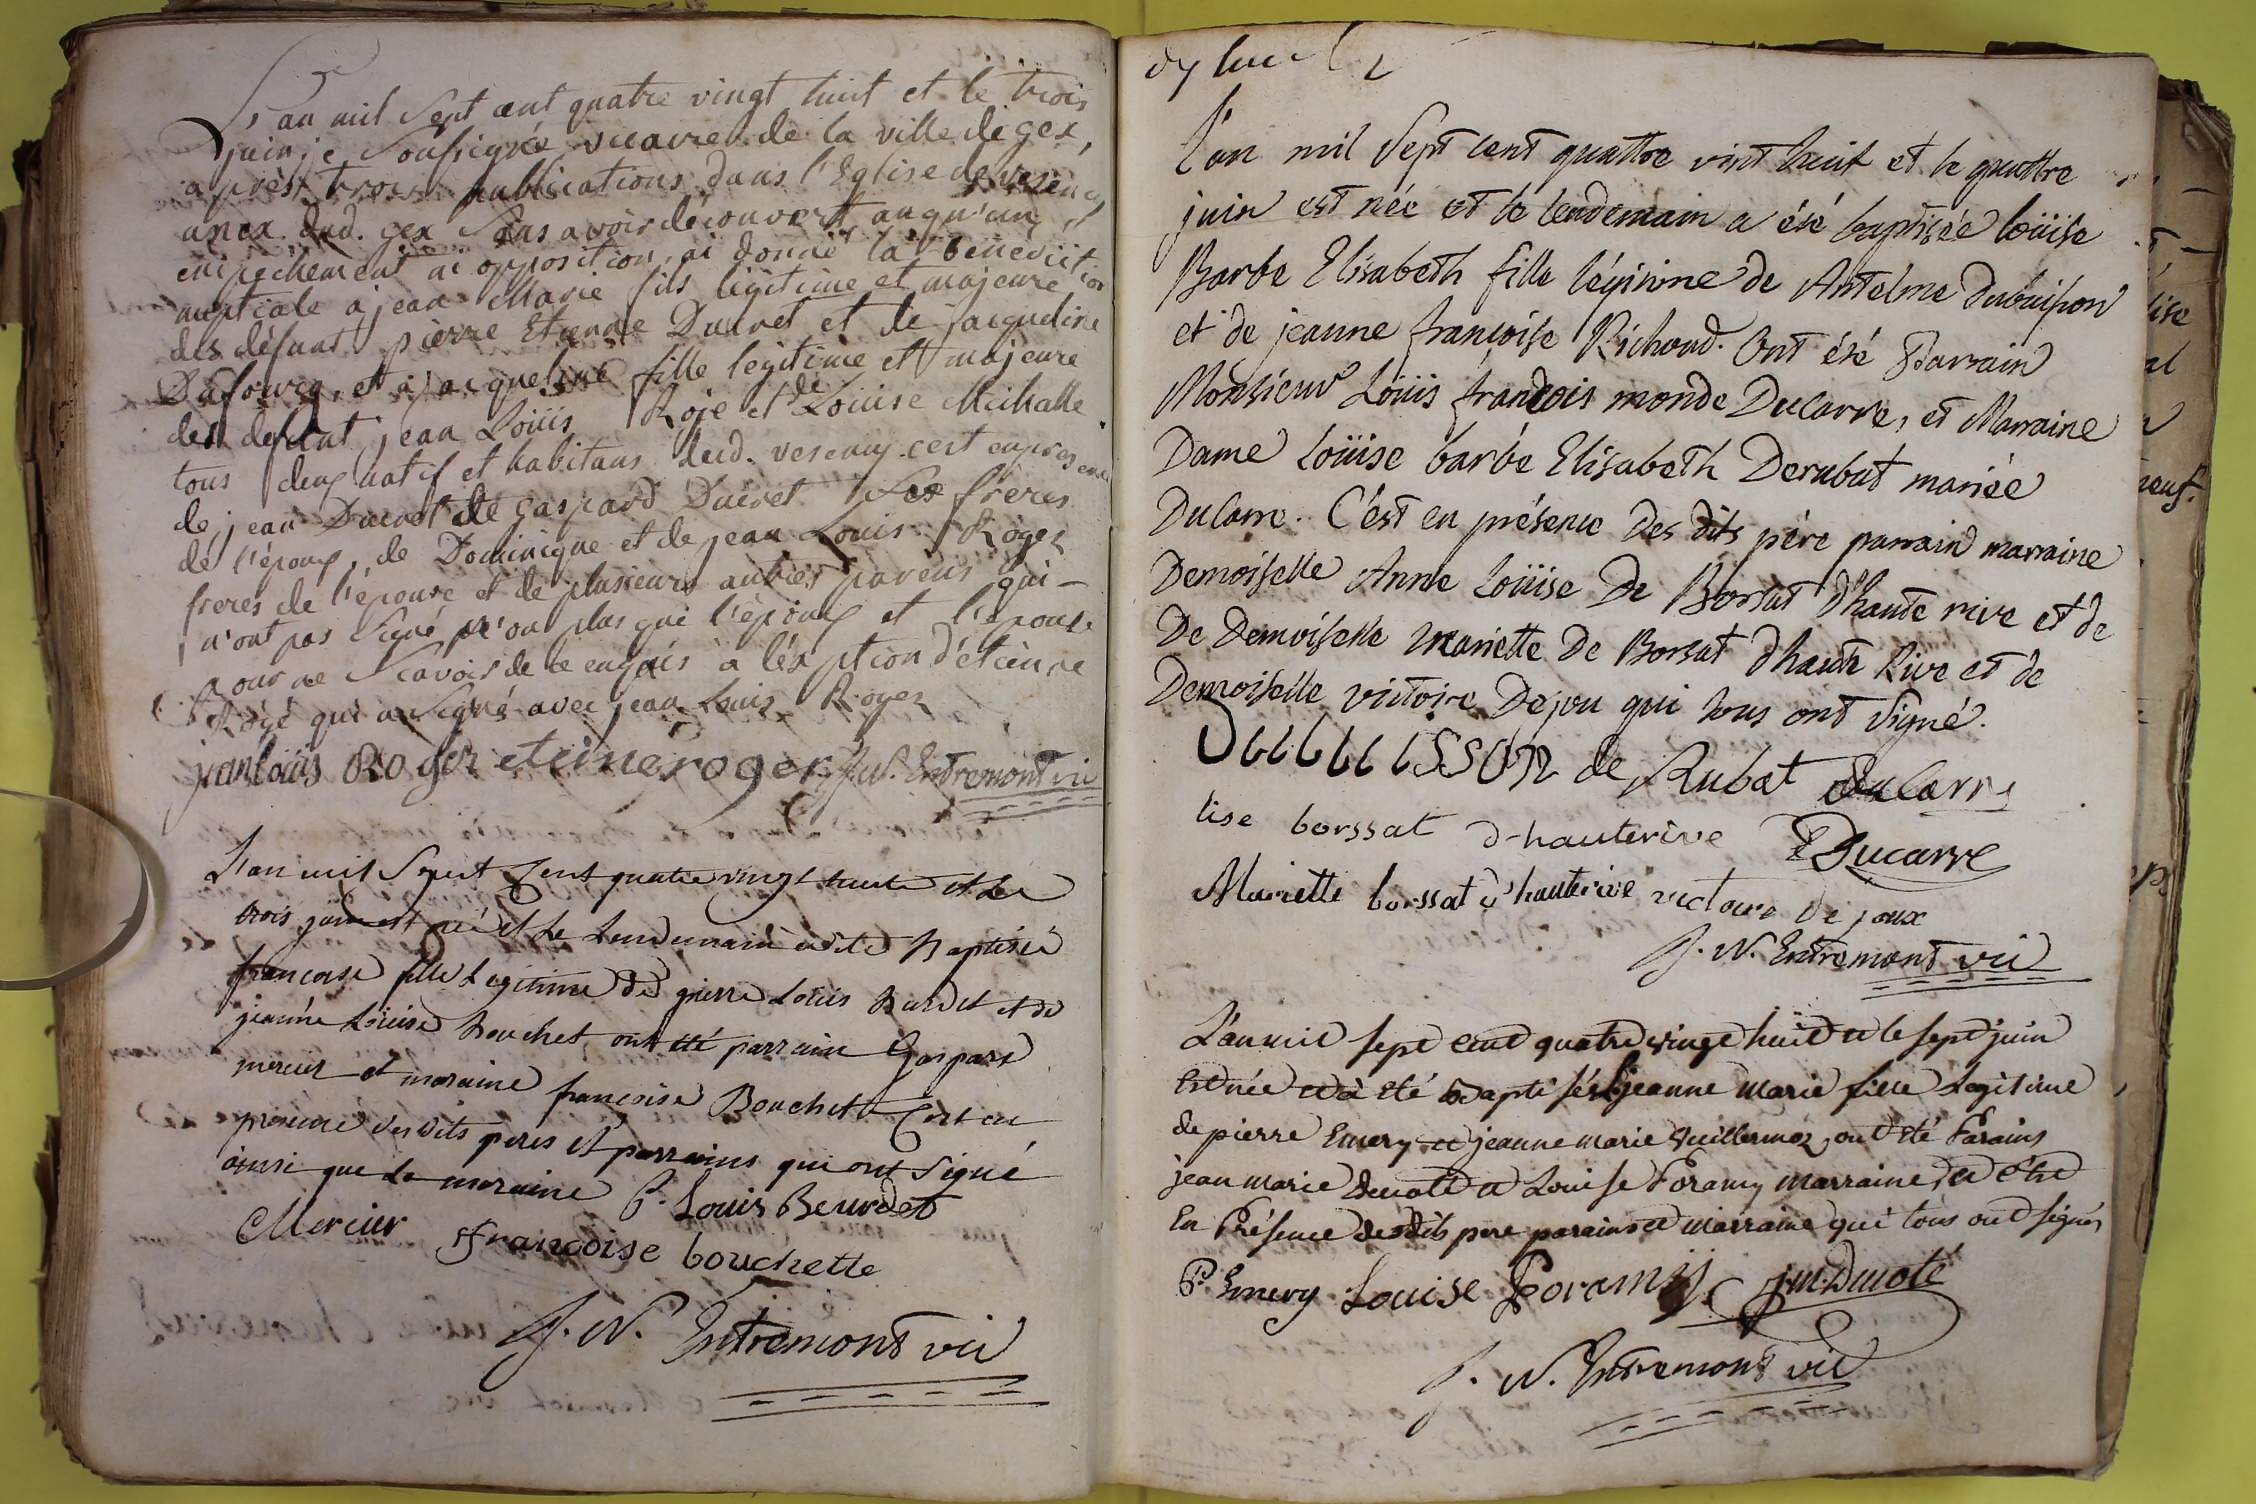 L'an mil Sept cent quatre vingt huit et le trois
juin je Soussigné vicaire de la ville de gex,
après trois publications dans l'Eglise de vesency
anex dud. gex Sans avoir découvert auqu'un
empechement ni opposition, ai donné la bénédiction
nuptiale à jean Marie fils légitime et majeure
des défunt pierre Etienne Ducret et de jacqueline
Dufourg, et à jacqueline fille légitime et majeure
des défunt jean Louis Roje et de Louise
tous deux natif et habitans dud. vesency c'est en presence
de jean Ducret de gaspard Ducret Ses freres
de l'époux, de Dominique et de jean Louis Roger
freres de l'épouse et de plusieurs autres parens qui
n'ont pas Signé n'on plus que l'époux et l'épouse
pour ne Scavoir de ce enquis à l'éxption d'étienne
Rogé qui a Signé avec jean Louis Roger
janloüis Roger eteine roger J. N. Entremont vic
L'an mil Sept Cent quatre vingt huite et Le
trois juin est née et Le Lendemain a été Baptisée
francoise fille Legitime de pierre Louis Burdet et de
jeanne Loüise Bouchet, ont été parrain Gaspard
mercier et maraine françoise Bouchet C'est en
présence des dits peres et parrains qui ont Signé
ainsi que La maraine P. Louis Beurdet
Mercier françoise bouchette
J. N. Entremont vic
L'an mil Sept cent quattre vint huit et le quattre
juin est née et le lendemain a été baptisée loüise
Barbe Elisabeth fille légitime de Antelme Dubuisson
et de jeanne françoise Richond. Ont été Parrain
Monsieur Loüis françois monde Ducarre, et Marraine
Dame loüise barbe Elisabeth Derubat mariée
Ducarre. C'est en présence des dits père parrain marraine
Demoiselle Anne loüise De Borsat D'haute rive et de
De Demoiselle Mariette De Borsat D'haute Rive et de
Demoiselle victoire Dejou qui tous ont Signé.
Dubuisson de Rubat ducarre
lise borssat d'hauterive Ducarre
Mariette borssat d'hauterive victoire de joux
J. N. Entremont vic
L'an mil sept cent quatre vingt huit et le sept juin
est née et à été baptisée jeanne marie fille Legitime
de pierre Emery et jeanne marie vuillermoz, ont été Parains
jean marie Ducoté et Louise Poramy marraine, et c'est
En Présence desdits pere parains et marraine qui tous ont signés
P. Emery Louise Poramy J. M. Ducoté
J. N. Entremont vic